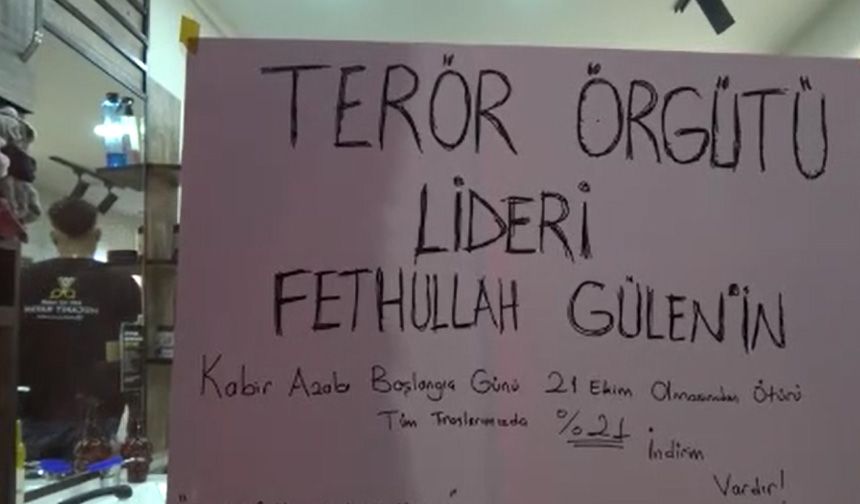 TERÖR ÖRGÜTÜ
LİDERİ
FETHULLAH GÜLEN'İN
Kabir Azabı Başlangıcı Günü 21 Ekim Olmasından Ötürü
Tüm Traşlarımızda %21 İndirim
Vardır!